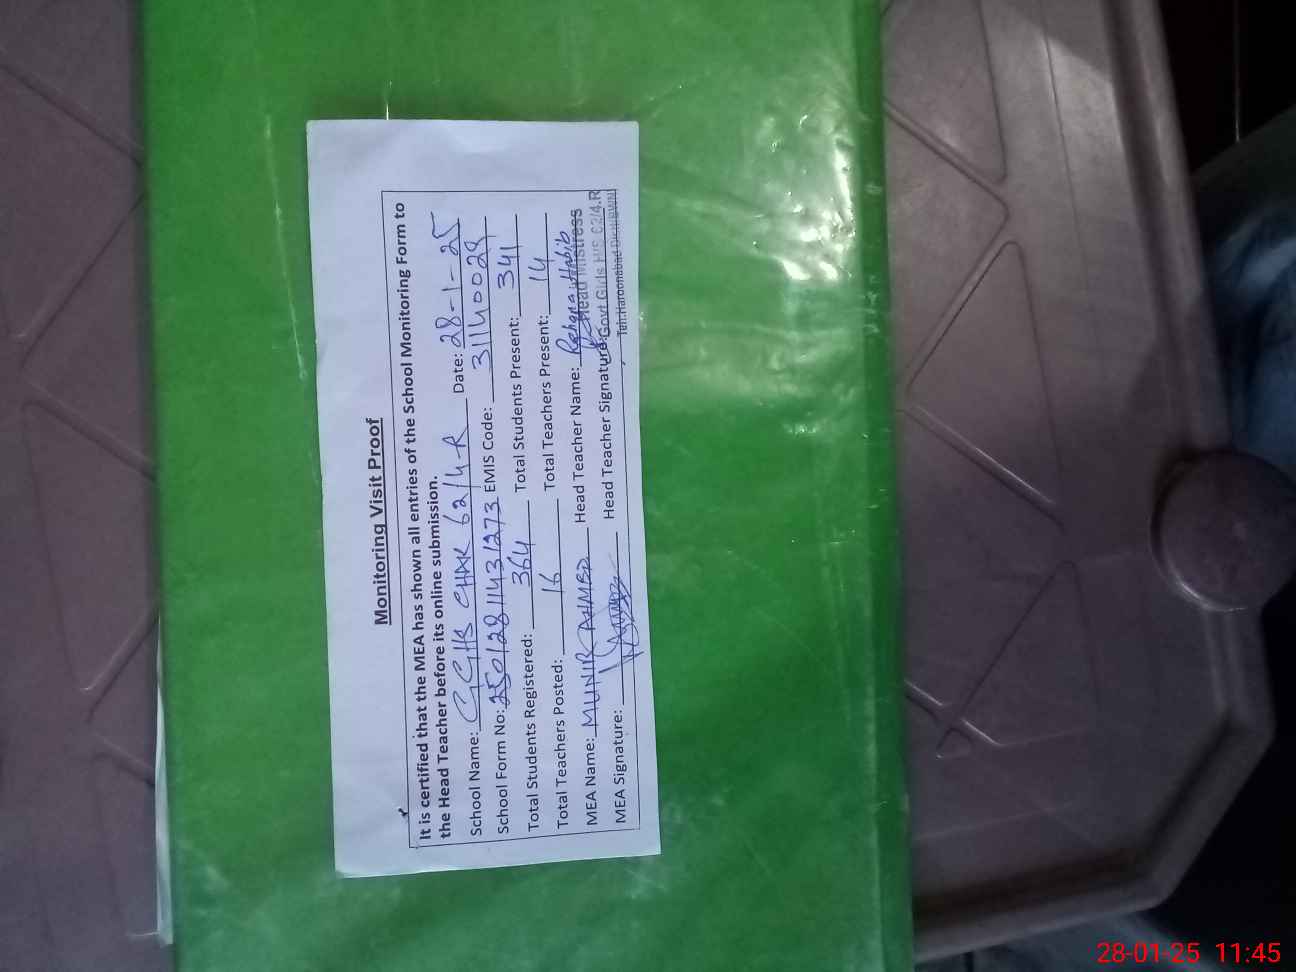 Monitoring Visit Proof
It is certified that the MEA has shown all entries of the School Monitoring Form to
the Head Teacher before its online submission.
School Name: GGHS CHAK 62/4-R Date: 28-1-25
School Form No: 25012811431273 EMIS Code: 31140029
Total Students Registered: 364 Total Students Present: 341
Total Teachers Posted: 16 Total Teachers Present: 14
MEA Name: MUNIR AHMED Head Teacher Name: Rehana Habib
MEA Signature: Head Teacher Signature:
Head Mistress
Govt Girls H/S 62/4.R
Teh: Haroonabad Distt: BWN
28-01-25 11:45